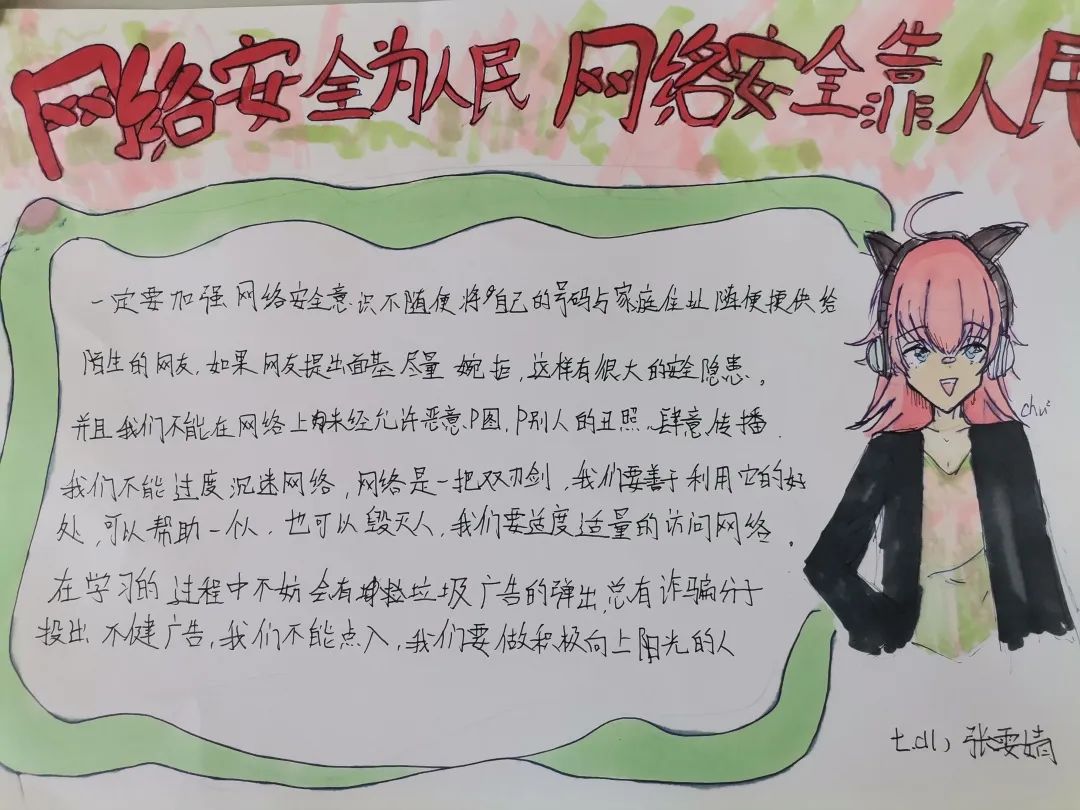 网络安全为人民 网络安全靠人民
一定要加强网络安全意识不随便将自己的号码与家庭住址随便提供给
陌生的网友，如果网友提出面基尽量婉拒，这样有很大的安全隐患。
并且我们不能在网络上未经允许恶意P图，P别人的丑照肆意传播.
我们不能过度沉迷网络，网络是一把双刃剑，我们要善于利用它的好
处，可以帮助一个人，也可以毁灭人，我们要适度适量的访问网络.
在学习的过程中不妨会有垃圾广告的弹出，总有诈骗分子
投出不健广告，我们不能点入，我们要做积极向上阳光的人
chu²
七.(1) 张雯婧